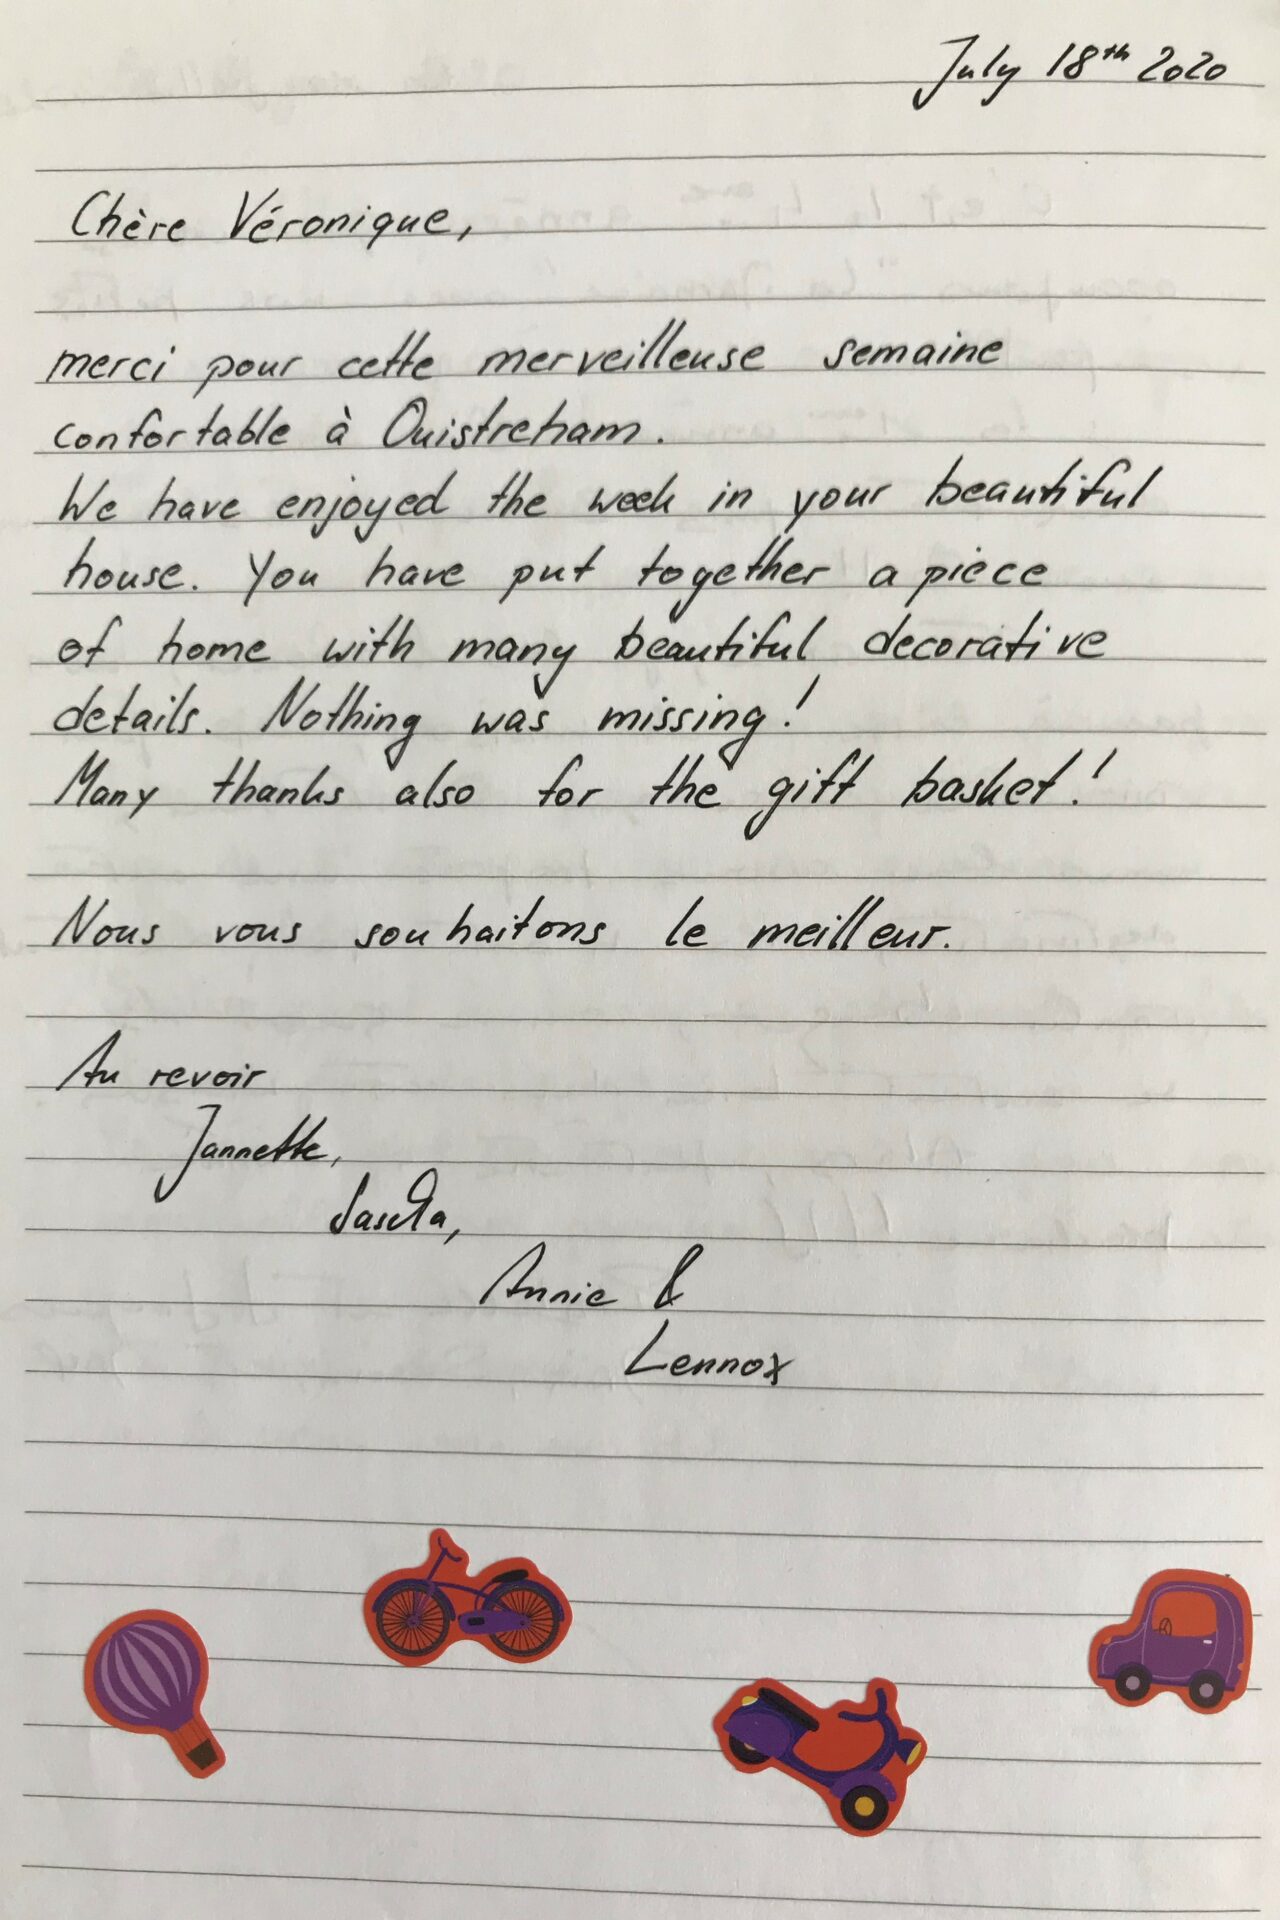 July 18th 2020
Chère Véronique,
merci pour cette merveilleuse semaine
confortable à Ouistreham.
We have enjoyed the week in your beautiful
house. You have put together a piece
of home with many beautiful decorative
details. Nothing was missing!
Many thanks also for the gift basket!
Nous vous souhaitons le meilleur.
Au revoir
Jannette,
Sascha,
Annie &
Lennox